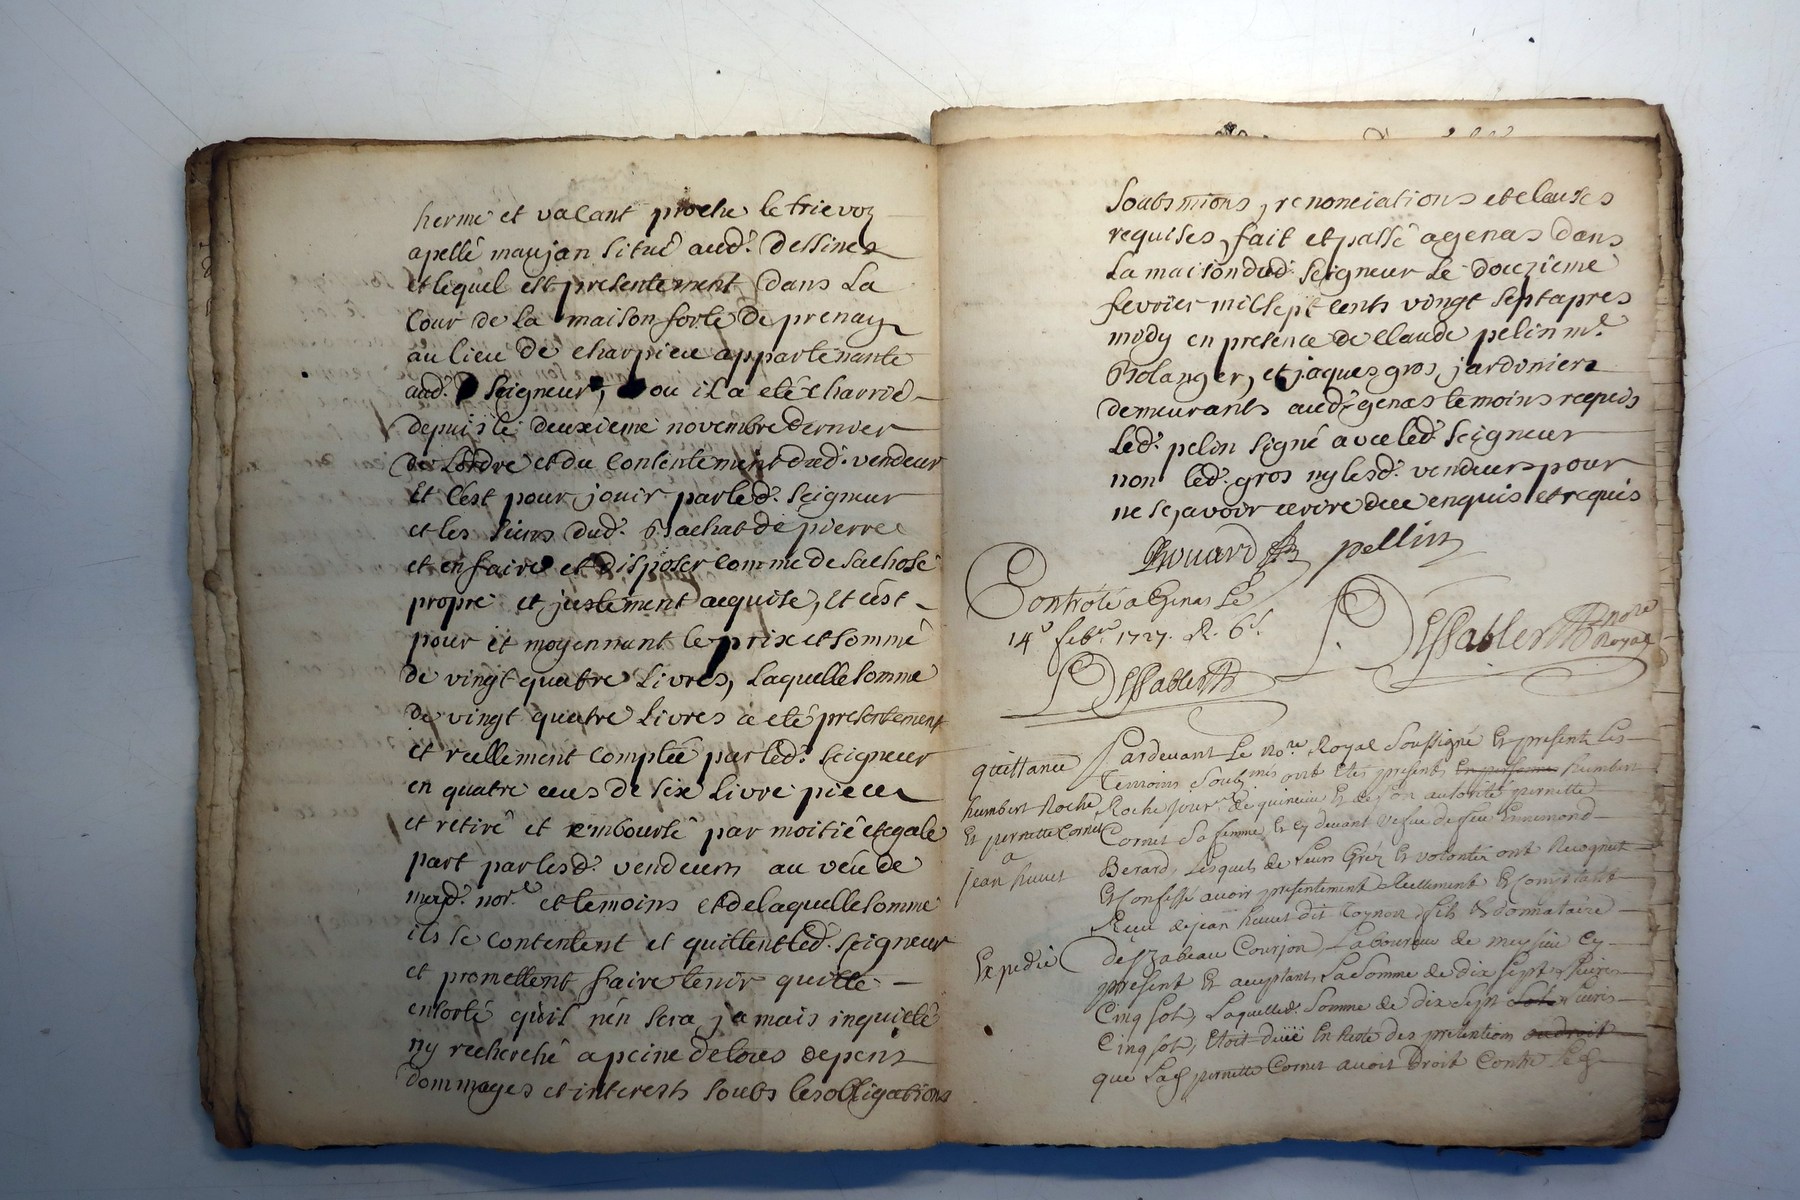 herme et vacant proche le trievoz
apellé maujan situé aud.t Dessines
et lequel est presentement dans La
Cour de La maison forte de prenay
au lieu de charpieu appartenante
aud. Seigneur, ou il a eté charrié
depuis le deuxieme novembre dernier
de Lordre et du Contentement dud. vendeur
Et C'est pour jouir par led. Seigneur
et les siens dud. achat de pierre
et en faire et disposer comme de sa chose
propre et justement acquise, et c'est
pour et moyennant le prix et somme
de vingt quatre Livres, Laquelle somme
de vingt quatre Livres a eté presentement
et reellement Comptée par led. Seigneur
en quatre ecus de six Livre piece
et retiré et rembourse par moitié et egale
part par lesd. vendeurs au veu de
moyd. nor.e et temoins et de laquelle somme
ils se contentent et quittent led. Seigneur
et promettent faire tenir quitte
en sorte qu'il n'en sera jamais inquieté
ny recherché a peine de tous depens
dommages et interests soubs les obligations
soubsmions, renonciations et clauses
requises, fait et passé a genas dans
La maison dud. Seigneur Le douzieme
fevrier mil sept cents vingt sept apres
midy en presence de Claude pelin m.e
Bolanger, et jaques gros, jardinier
demeurants aud. genas temoins requis
Led. pelin signé avec led. Seigneur
non led. gros ny lesd. vendeurs pour
ne sçavoir ecrire de ce enquis et requis
pellin
Controlé a Genas Le
14e feb.er 1727. R. 6 s.
Dessabler
Dessabler no.re Royal
quittance
humbert Roche
Et pernette Cornet
a
jean huvet
Expedié
Pardevant Le no.re Royal soussigné Et presents Les
Temoins soub mis ont Etes presents En personne humbert
Roche jour.er de quincieu Et de son autorité pernette
Cornet sa femme, Et cy devant vefve de feu Ennemond
Berard, Lesquels de Leurs Gréz Et volontés ont Recognut
Et confessé avoir presentement Reellement Et comptant
Receu de jean huvet dit Coynon fils Et donnataire
de Yzabeau Courjon, Laboureur de meysieu Cy
present Et acceptant, La somme de dix sept Livres
Cinq sols, Laquelle d. somme de dix sept sols Livres
Cinq sols, Etoit deüe En Reste des pretentions ou droit
que Lad pernette Cornet avoit Droit Contre Led